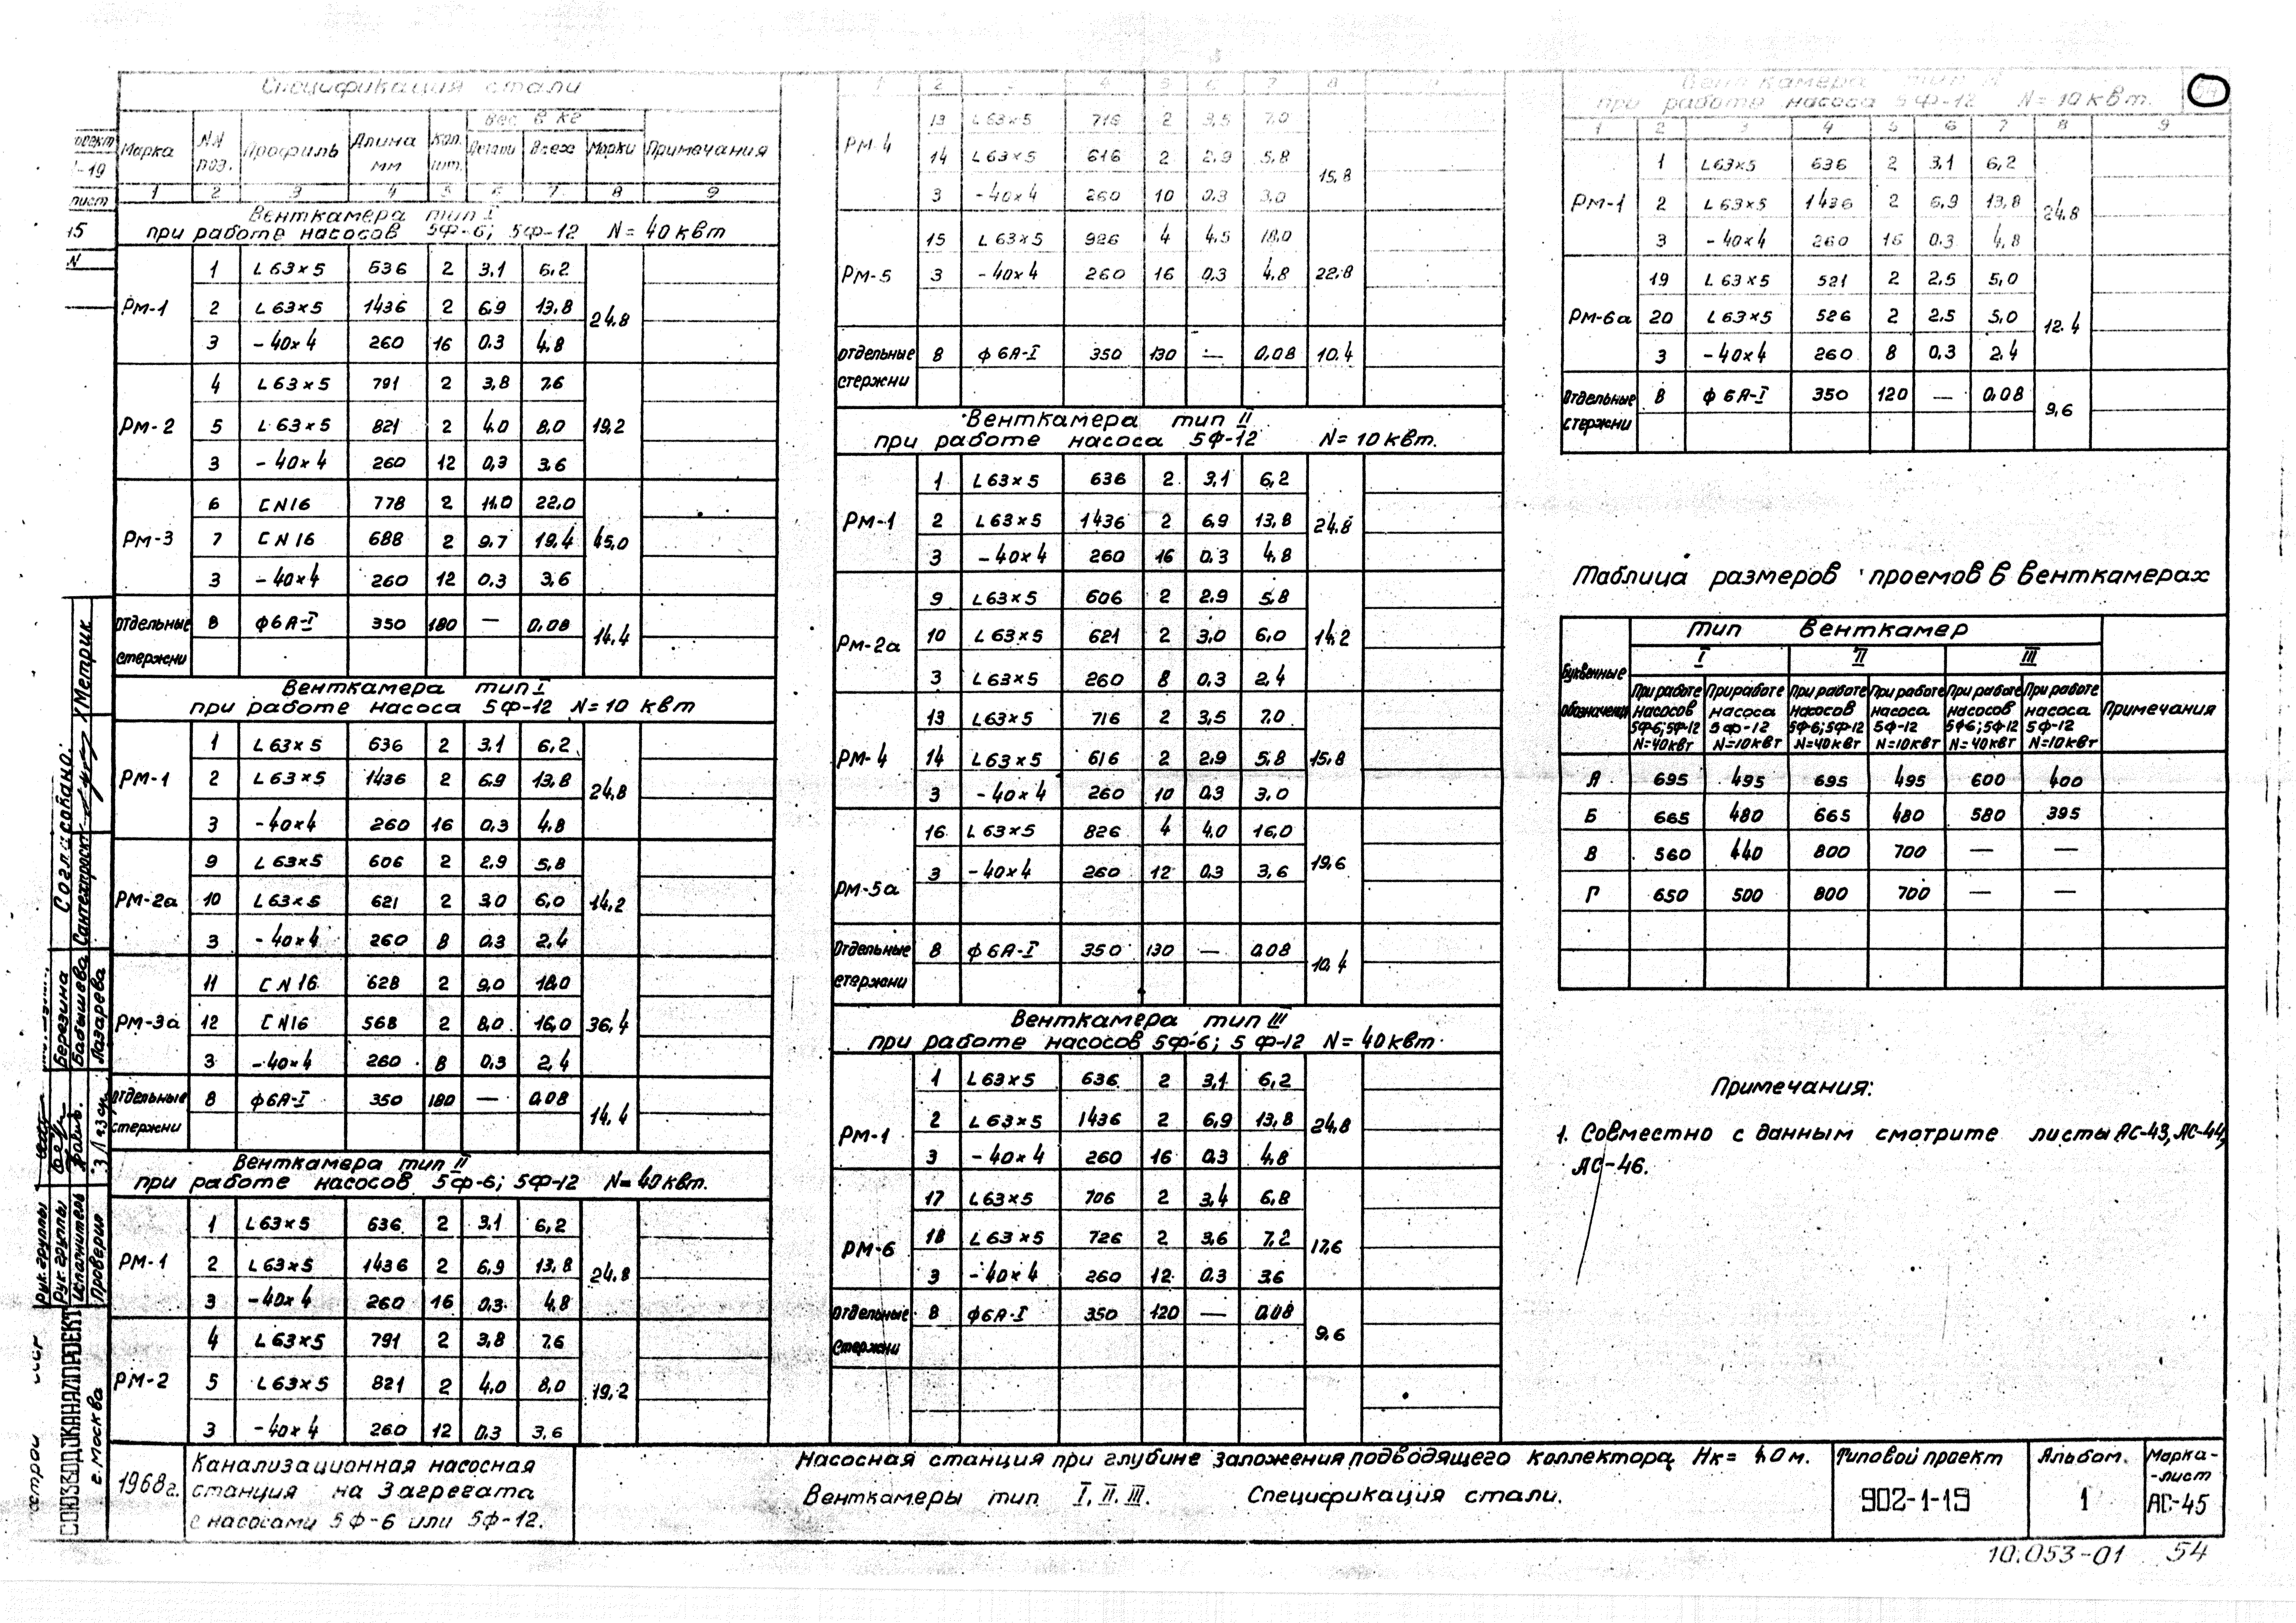 Спецификация стали
Марка NN поз. Профиль Длина мм Кол. шт. Вес в кг Детали Всех Марки Примечания
1 2 3 4 5 6 7 8 9
Венткамера тип I
при работе насосов 5Ф-6; 5Ф-12 N=40 квт
РМ-1 24.8
1 L63×5 636 2 3,1 6,2
2 L63×5 1436 2 6,9 13,8
3 -40×4 260 16 0.3 4.8
РМ-2 19,2
4 L63×5 791 2 3,8 7.6
5 L63×5 821 2 4.0 8,0
3 -40×4 260 12 0,3 3.6
РМ-3 45,0
6 C N16 778 2 11.0 22.0
7 C N16 688 2 9.7 19.4
3 -40×4 260 12 0.3 3,6
Отдельные стержни 14.4
8 ф6А-I 350 180 — 0.08
Венткамера тип I
при работе насоса 5Ф-12 N=10 квт
РМ-1 24,8
1 L63×5 636 2 3.1 6,2
2 L63×5 1436 2 6.9 13,8
3 -40×4 260 16 0,3 4.8
РМ-2а 14,2
9 L63×5 606 2 2.9 5,8
10 L63×5 621 2 3.0 6,0
3 -40×4 260 8 0.3 2,4
РМ-3а 36,4
11 C N16 628 2 9,0 18,0
12 C N16 568 2 8,0 16,0
3 -40×4 260 8 0,3 2,4
Отдельные стержни 14.4
8 ф6А-I 350 180 — 0.08
Венткамера тип II
при работе насосов 5Ф-6; 5Ф-12 N=40 квт.
РМ-1 24,8
1 L63×5 636 2 3,1 6,2
2 L63×5 1436 2 6,9 13,8
3 -40×4 260 16 0,3 4.8
РМ-2 19,2
4 L63×5 791 2 3,8 7.6
5 L63×5 821 2 4.0 8,0
3 -40×4 260 12 0.3 3,6
1 2 3 4 5 6 7 8 9
РМ-4 15,8
13 L63×5 716 2 3,5 7.0
14 L63×5 616 2 2.9 5,8
3 -40×4 260 10 0.3 3,0
РМ-5 22.8
15 L63×5 926 4 4,5 18,0
3 -40×4 260 16 0,3 4,8
Отдельные стержни 10.4
8 ф6А-I 350 130 — 0,08
Венткамера тип II
при работе насоса 5Ф-12 N=10 квт.
РМ-1 24.8
1 L63×5 636 2 3,1 6,2
2 L63×5 1436 2 6,9 13,8
3 -40×4 260 16 0.3 4,8
РМ-2а 14,2
9 L63×5 606 2 2.9 5,8
10 L63×5 621 2 3,0 6,0
3 L63×5 260 8 0.3 2,4
РМ-4 15,8
13 L63×5 716 2 3,5 7.0
14 L63×5 616 2 2.9 5,8
3 -40×4 260 10 0.3 3.0
РМ-5а 19,6
16 L63×5 826 4 4.0 16,0
3 -40×4 260 12 0.3 3,6
Отдельные стержни 10,4
8 ф6А-I 350 130 — 0.08
Венткамера тип III
при работе насосов 5Ф-6; 5Ф-12 N=40 квт.
РМ-1 24,8
1 L63×5 636 2 3,1 6,2
2 L63×5 1436 2 6,9 13,8
3 -40×4 260 16 0.3 4,8
РМ-6 17,6
17 L63×5 706 2 3,4 6,8
18 L63×5 726 2 3,6 7,2
3 -40×4 260 12 0.3 3.6
Отдельные стержни 9.6
8 ф6А-I 350 120 — 0.08
Венткамера тип III
при работе насоса 5Ф-12 N=10 квт.
54
1 2 3 4 5 6 7 8 9
РМ-1 24,8
1 L63×5 636 2 3,1 6,2
2 L63×5 1436 2 6,9 13,8
3 -40×4 260 16 0.3 4,8
РМ-6а 12.4
19 L63×5 521 2 2.5 5,0
20 L63×5 526 2 2.5 5,0
3 -40×4 260 8 0,3 2,4
Отдельные стержни 9,6
8 ф6А-I 350 120 — 0,08
Таблица размеров проемов в венткамерах
Буквенные обозначения Тип венткамер Примечания
I II III
При работе насосов 5Ф-6; 5Ф-12 N=40квт
При работе насоса 5Ф-12 N=10квт
При работе насосов 5Ф-6; 5Ф-12 N=40квт
При работе насоса 5Ф-12 N=10квт
При работе насосов 5Ф6; 5Ф-12 N=40квт
При работе насоса 5Ф-12 N=10квт
А 695 495 695 495 600 400
Б 665 480 665 480 580 395
В 560 440 800 700 — —
Г 650 500 800 700 — —
Примечания:
1. Совместно с данным смотрите листы АС-43, АС-44,
АС-46.
Согласовано:
Сантехпроект Хметрик
Рук. группы
Рук. группы Березина
Исполнитель Бабышева
Проверил Лазарева
СОЮЗВОДОКАНАЛПРОЕКТ
г. Москва
1968г.
Канализационная насосная
станция на 3 агрегата
с насосами 5Ф-6 или 5Ф-12.
Насосная станция при глубине заложения подводящего коллектора Нк= 4.0 м.
Венткамеры тип I, II, III. Спецификация стали.
Типовой проект
902-1-19
Альбом.
1
Марка-
-лист
АС-45
10.053-01 54